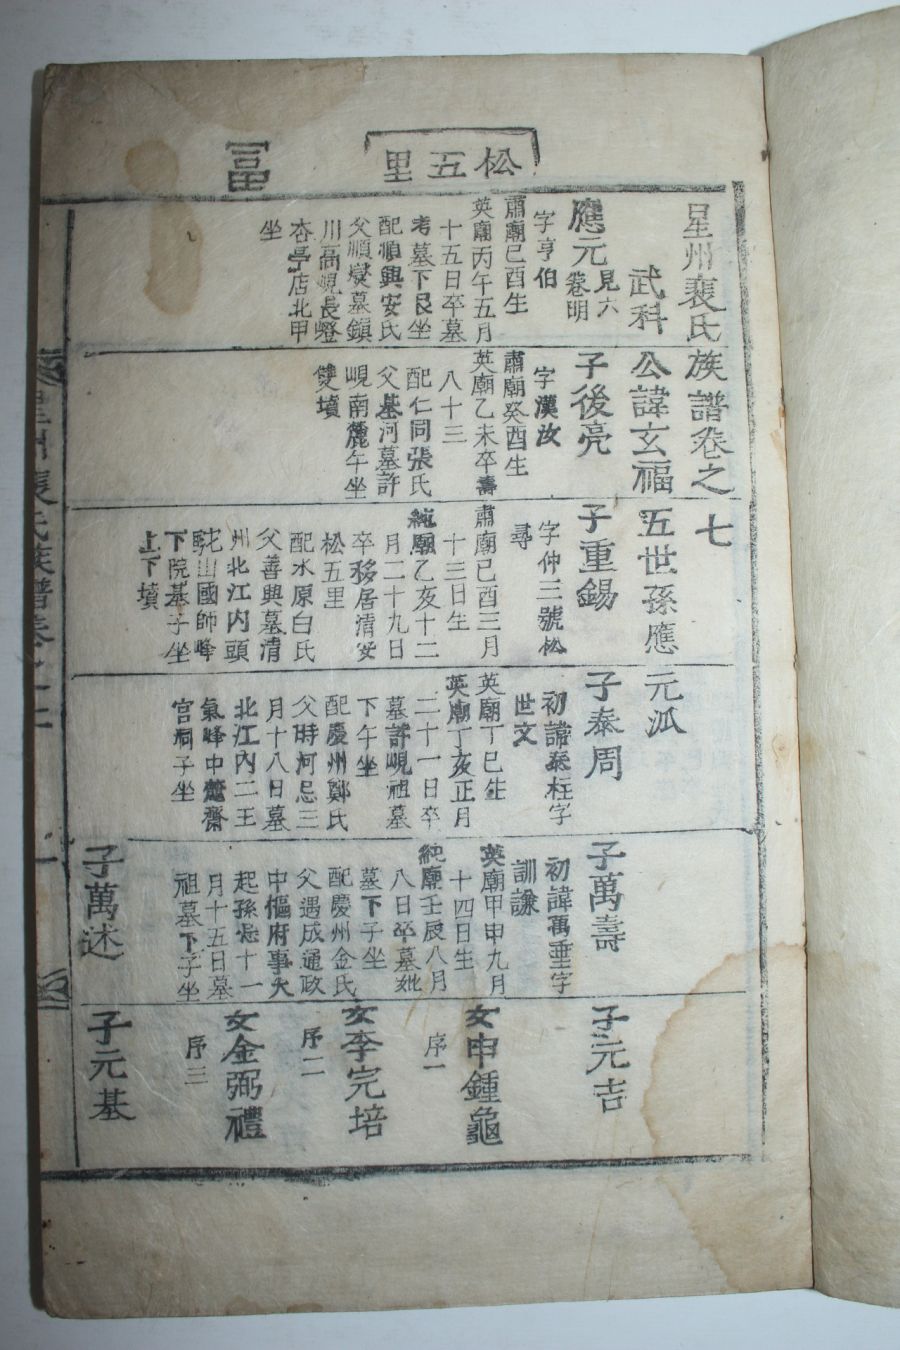 松五里
冨
星州裵氏族譜卷之七
武科公諱玄福五世孫應元派
應元
見六卷明
字亨伯
肅廟己酉生
英廟丙午五月
十五日卒墓
考墓下艮坐
配順興安氏
父順燮墓鎭
川高峴長嶝
杏亭店北甲
坐
子後亮
字漢汝
肅廟癸酉生
英廟乙未卒壽
八十三
配仁同張氏
父基河墓許
峴南麓午坐
雙墳
子重錫
字仲三號松
尋
肅廟己酉三月
十三日生
純廟乙亥十二
月二十九日
卒移居淸安
松五里
配水原白氏
父善興墓淸
州北江內頭
駝山國師峰
下院基子坐
上下墳
子泰周
初諱 枉字
世文
英廟丁巳生
英廟丁亥正月
二十一日卒
墓許峴祖墓
下午坐
配慶州鄭氏
父時河忌三
月十八日墓
北江內二王
氣峰中 齋
宮洞子坐
子萬壽
初諱萬重字
訓謙
英廟甲申九月
十四日生
純廟壬辰八月
八日卒墓妣
墓下子坐
配慶州金氏
父遇成通政
中樞府事大
起孫忌十一
月十五日墓
祖墓下子坐
子萬述
子元吉
女申鍾龜
序一
女李完培
序二
女金弼禮
序三
子元基
星州裵氏族譜卷之七
一